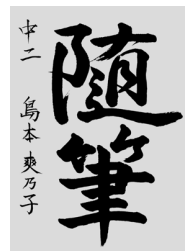 随筆
中二 島本爽乃子